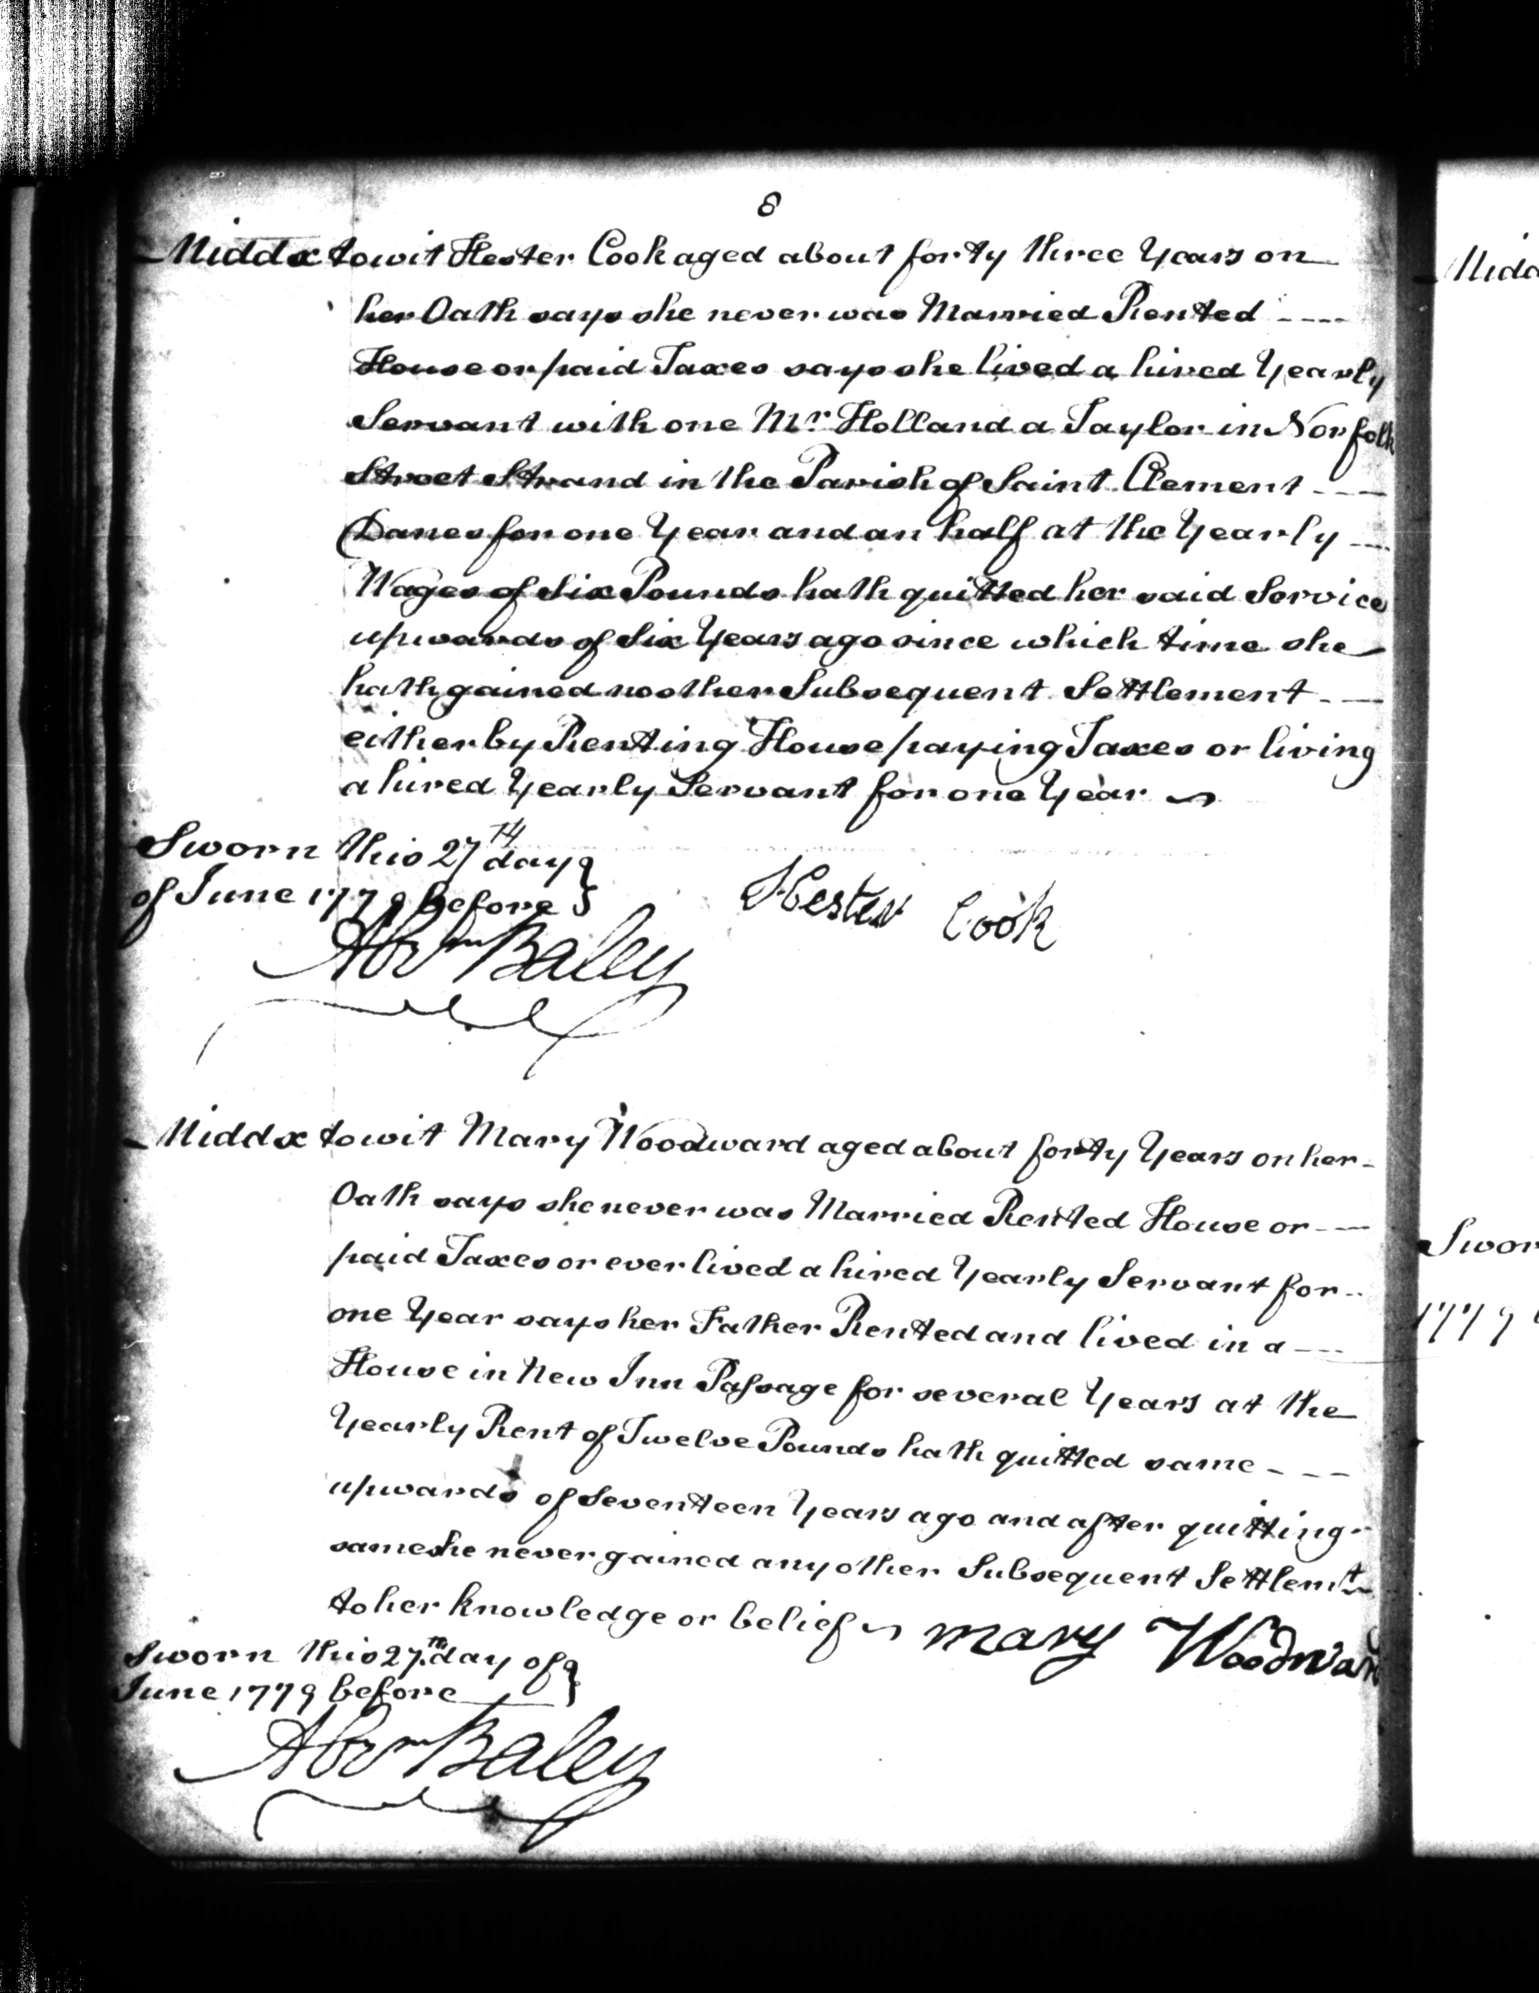 8
Middx to wit Hester Cook aged about forty three Years on
her Oath says she never was Married Rented
House or paid Taxes says she lived a hired Yearly
Servant with one Mr. Holland a Taylor in Norfolk
Street Strand in the Parish of Saint Clement
Danes for one Year and an half at the Yearly
Wages of Six Pounds hath quitted her said Service
upwards of Six Years ago since which time she
hath gained no other Subsequent Settlement
either by Renting House paying Taxes or living
a hired Yearly Servant for one Year
Sworn this 27th day
of June 1779 before
Hester Cook
Abrm Baley
Middx to wit Mary Woodward aged about forty Years on her
Oath says she never was Married Rented House or
paid Taxes or ever lived a hired Yearly Servant for
one Year says her Father Rented and lived in a
House in New Inn Passage for several Years at the
Yearly Rent of Twelve Pounds hath quitted same
upwards of Seventeen Years ago and after quitting
same she never gained any other Subsequent Settlemt
to her knowledge or belief
Mary Woodward
Sworn this 27th day of
June 1779 before
Abrm Baley
Midd
Swor
1779